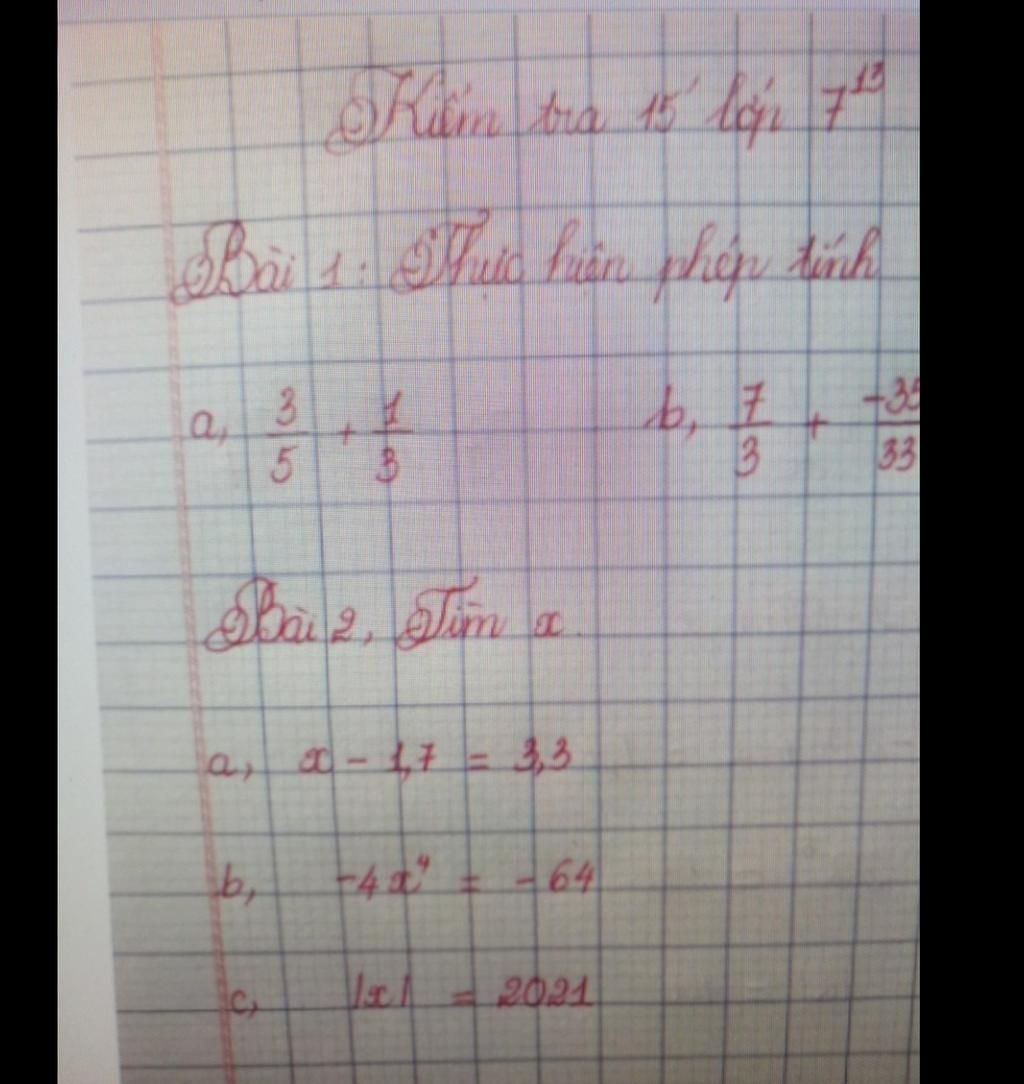 Kiểm tra 15' lớp 7¹³
Bài 1: Thực hiện phép tính
a, 3/5 + 1/3 b, 7/3 + /33
Bài 2, Tìm x
a, x - 1,7 = 3,3
b, -4x⁴ = -64
c, |x| = 2021